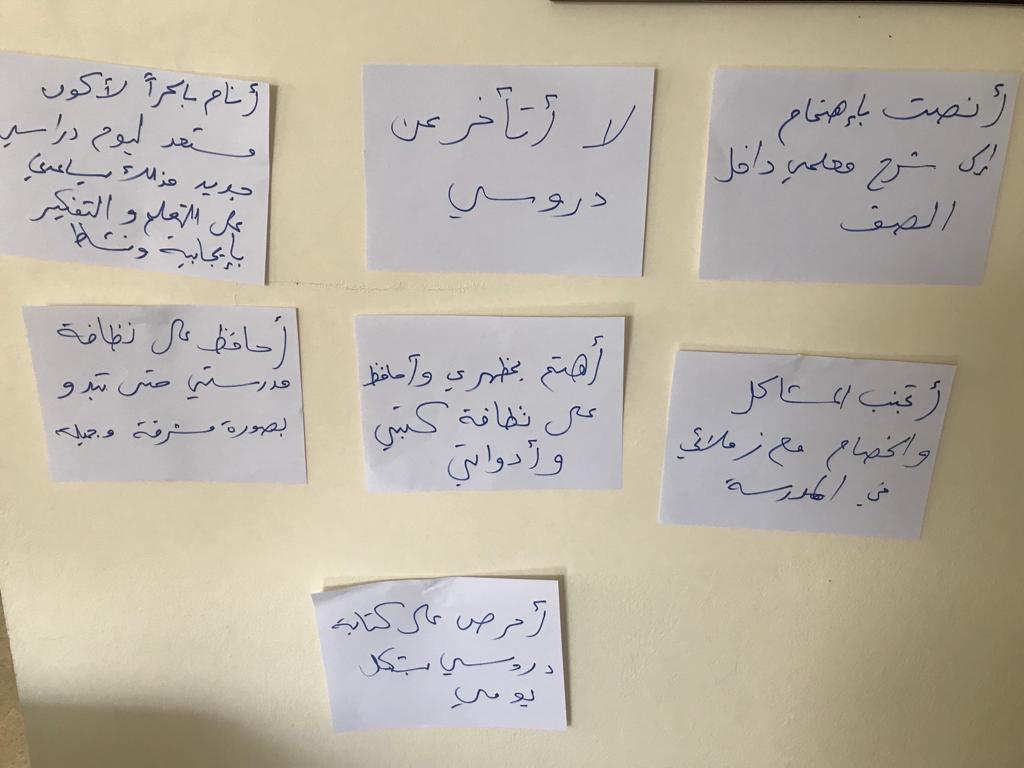 أنصت بإهتمام
إلى شرح معلمي داخل
الصف
لا أتأخر عن
دروسي
أنام باكراً لأكون
مستعد ليوم دراسي
جديد فذلك يساعدني
على التعلم و التفكير
بإيجابية ونشاط
أتجنب المشاكل
والخصام مع زملائي
في المدرسة
أهتم بمظهري وأحافظ
على نظافة كتبي
وأدواتي
أحافظ على نظافة
مدرستي حتى تبدو
بصورة مشرفة وجميله
أحرص على كتابة
دروسي بشكل
يومي